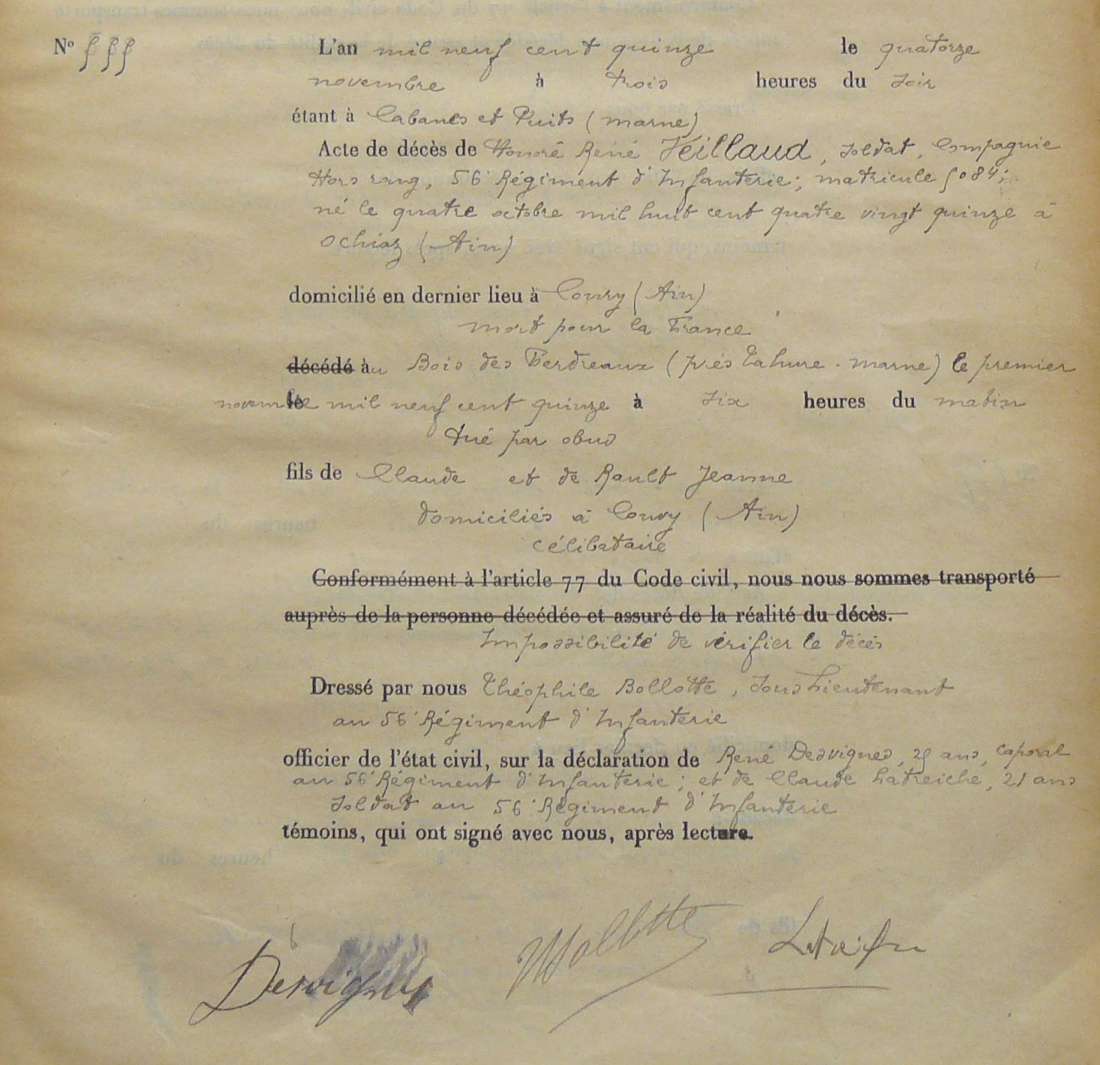 N° 555 L'an mil neuf cent quinze le quatorze
novembre à trois heures du soir
étant à Cabanes et Puits (Marne)
Acte de décès de Honoré René Veillaud, soldat, Compagnie
Hors rang, 56e Régiment d'Infanterie; matricule 5084;
né le quatre octobre mil huit cent quatre vingt quinze à
Ochiaz (Ain)
domicilié en dernier lieu à Coupy (Ain)
mort pour la France
décédé au Bois des Perdreaux (près Tahure - Marne) le premier
novembre mil neuf cent quinze à six heures du matin
tué par obus
fils de Claude et de Rault Jeanne
domiciliés à Coupy (Ain)
célibataire
Conformément à l'article 77 du Code civil, nous nous sommes transporté
auprès de la personne décédée et assuré de la réalité du décès.
Impossibilité de vérifier le décès
Dressé par nous Théophile Bollotte, Sous Lieutenant
au 56e Régiment d'Infanterie
officier de l'état civil, sur la déclaration de René Desvignes, 25 ans, caporal
au 56e Régiment d'Infanterie; et de Claude Latreiche, 21 ans
soldat au 56e Régiment d'Infanterie
témoins, qui ont signé avec nous, après lecture.
Desvignes Bollotte